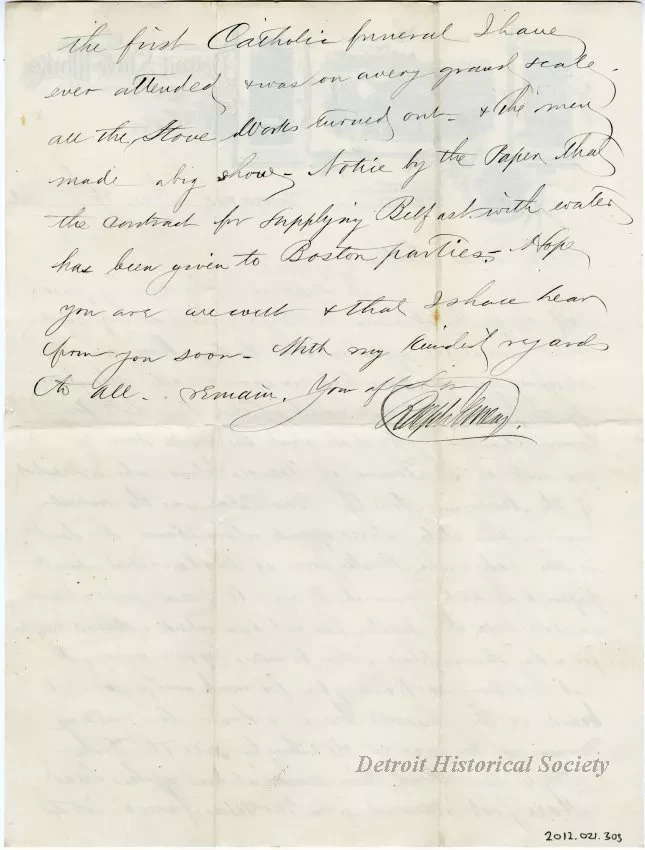 the first Catholic funeral I have
ever attended & was on a very grand scale.
all the Stove Works turned out - & the men
made a big show - Notice by the Paper that
the contract for supplying Belfast with water
has been given to Boston parties - Hope
you are are well & that I shall hear
from you soon - With my kindest regards
to all - remain, Your
Ralph
Detroit Historical Society
2012.021.303